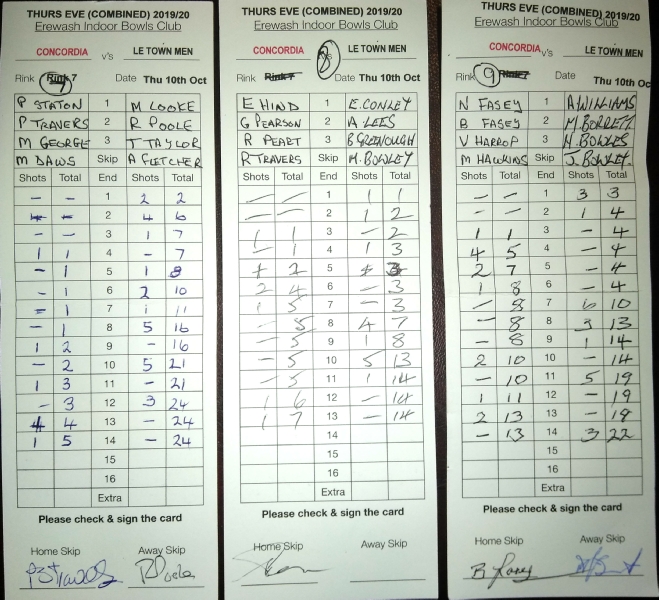 THURS EVE (COMBINED) 2019/20
Erewash Indoor Bowls Club
CONCORDIA v's LE TOWN MEN
Rink Rink 7 7 Date Thu 10th Oct
P STATON 1 M LOOKE
P TRAVERS 2 R POOLE
M GEORGE 3 T TAYLOR
M DAWS Skip A FLETCHER
Shots Total End Shots Total
- - 1 2 2
- - 2 4 6
- - 3 1 7
1 1 4 - 7
- 1 5 1 8
- 1 6 2 10
- 1 7 1 11
- 1 8 5 16
1 2 9 - 16
- 2 10 5 21
1 3 11 - 21
- 3 12 3 24
4 13 - 24
1 5 14 - 24
15
16
Extra
Please check & sign the card
Home Skip Away Skip
THURS EVE (COMBINED) 2019/20
Erewash Indoor Bowls Club
CONCORDIA v's LE TOWN MEN
Rink Rink 7 Date Thu 10th Oct
E HIND 1 E. CONLEY
G PEARSON 2 A LEES
R PEART 3 B GREENOUGH
R TRAVERS Skip M. BOWLEY
Shots Total End Shots Total
- - 1 1 1
- - 2 1 2
1 1 3 - 2
- 1 4 1 3
1 2 5 3
2 4 6 - 3
1 5 7 - 3
- 5 8 4 7
- 5 9 1 8
- 5 10 5 13
- 5 11 1 14
1 6 12 - 14
1 7 13 - 14
14
15
16
Extra
Please check & sign the card
Home Skip Away Skip
THURS EVE (COMBINED) 2019/20
Erewash Indoor Bowls Club
CONCORDIA v's LE TOWN MEN
Rink 9 Rink 7 Date Thu 10th Oct
N FASEY 1 A WILLIAMS
B FASEY 2
V HARROP 3 BOWLES
M HAWKINS Skip J. BOWLEY
Shots Total End Shots Total
- - 1 3 3
- - 2 1 4
1 1 3 - 4
4 5 4 - 4
2 7 5 - 4
1 8 6 - 4
- 8 7 6 10
- 8 8 3 13
- 8 9 1 14
2 10 10 - 14
- 10 11 5 19
1 11 12 - 19
2 13 13 - 19
- 13 14 3 22
15
16
Extra
Please check & sign the card
Home Skip Away Skip